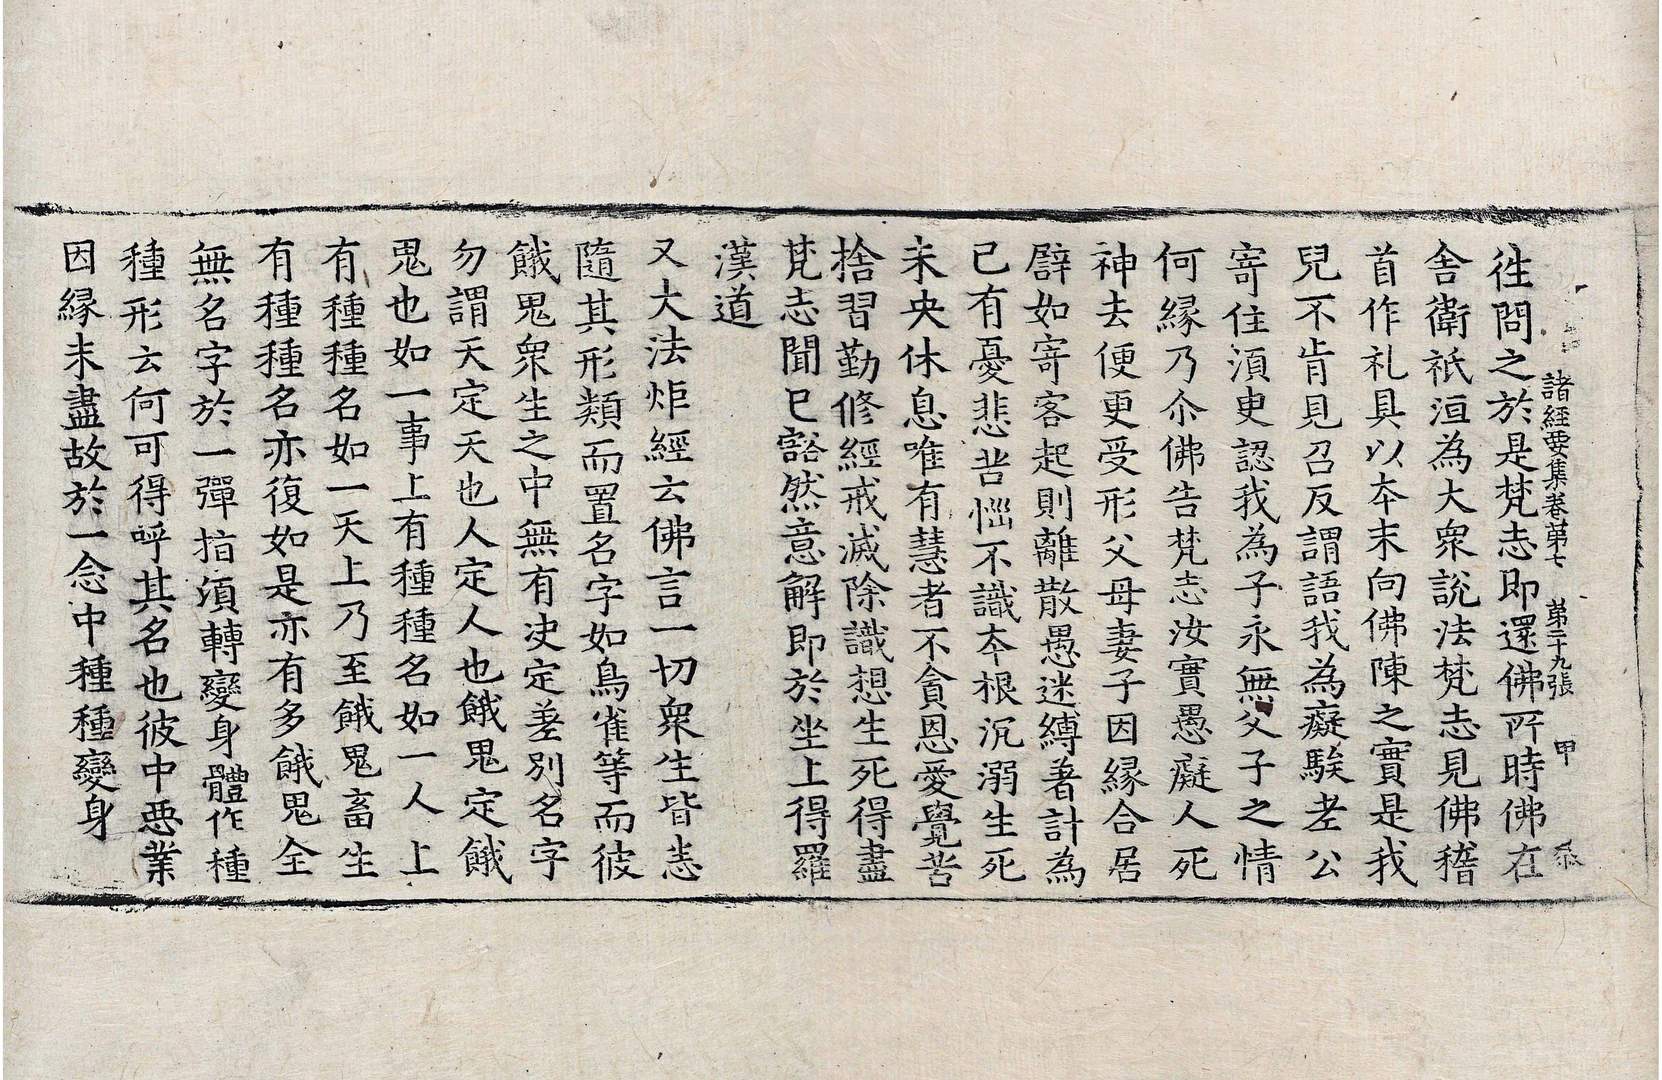 諸經要集卷第七 第二十九張 甲
徃問之於是梵志即還佛所時佛在
舍衛祇洹為大衆說法梵志見佛稽
首作礼具以夲末向佛陳之實是我
兒不肯見召反謂語我為癡騃老公
寄住須㪅認我為子永無父子之情
何縁乃尒佛告梵志汝實愚癡人死
神去便更受形父母妻子因縁合居
譬如寄客起則離散愚迷縛著計為
已有憂悲苦惱不識夲根沉溺生死
未央休息唯有慧者不貪恩愛覺苦
捨習勤修經戒滅除識想生死得盡
梵志聞已豁然意解即於坐上得羅
漢道
又大法炬經云佛言一切衆生皆悉
隨其形類而置名字如鳥雀等而彼
餓鬼衆生之中無有决定差別名字
勿謂天定天也人定人也餓鬼定餓
鬼也如一事上有種種名如一人上
有種種名如一天上乃至餓鬼畜生
有種種名亦復如是亦有多餓鬼全
無名字於一彈指須轉變身體作種
種形云何可得呼其名也彼中惡業
因縁未盡故於一念中種種變身